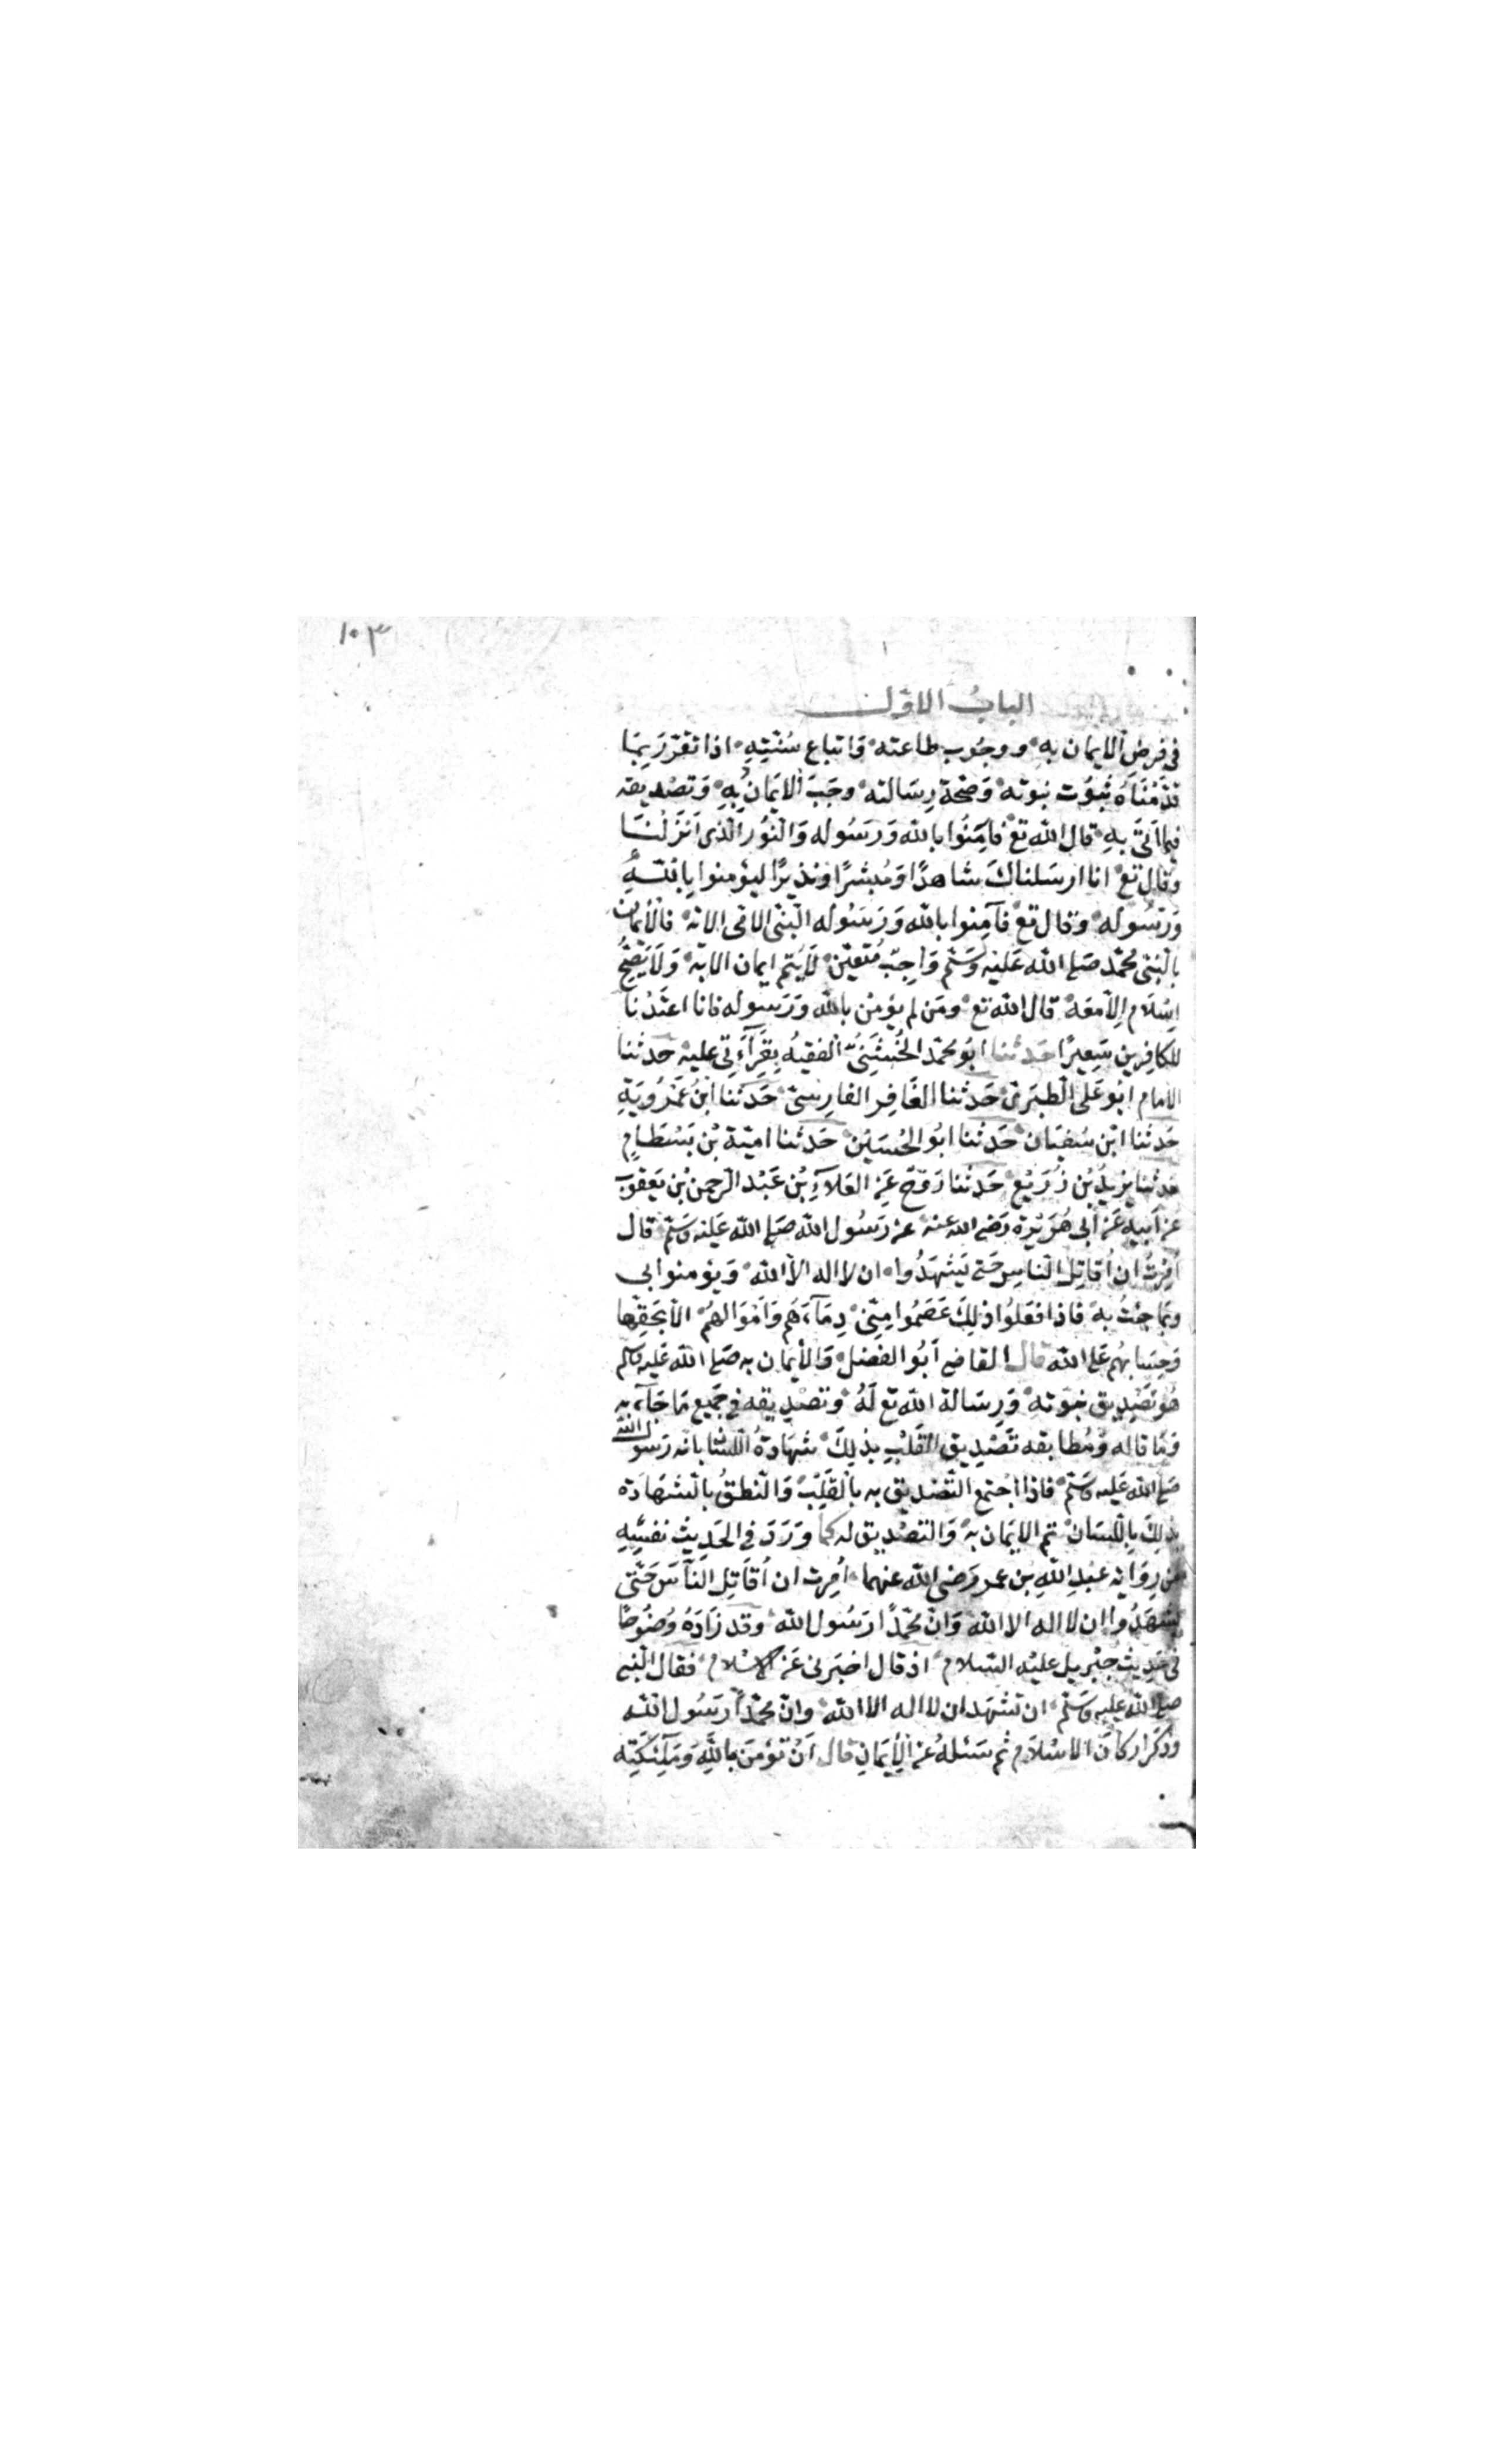 ١٠٣
الباب الاول
فى فرض الايمان به ووجُوب طاعته وَاتباع سُنّتِهِ اذا تقرّرَ بِمَا
قدّمْنَاهُ ثبُوت نبوته وَصحّة رِسَالته وجَبَ الايمَانُ بِهِ وَتصْديقه
فيما اَتَى بِهِ قال الله تع فآمِنُوا بالله وَرَسُوله وَالنّوُر الّذى اَنْزَلْنَا
وقال تع انا ارسَلناكَ شاهدًا وَمُبشرًا ونذيرًا ليؤمنوا بِاللهِ
وَرَسُوله وقال تع فآمِنوا بالله وَرَسُوله النّبىّ الامّى الاية فالايمان
بالنّبىّ محمّد صَلى الله عَليه وَسَلّم وَاجِبٌ مُتَعيّن لايُتم ايمان الا به وَلَا يَصِحُّ
اِسْلَام اِلّا معَهُ قال الله تع ومَن لم يؤمِنْ بالله وَرَسوله فانا اعتَدْنا
للكافِرين سَعِيرًا حدثنا ابُو محمّد الخُشَنِىُّ الفقيهُ بِقرَآءَتى عليه حَدثنا
الامام ابُو عَلى الطبَرىّ حَدثنا الغَافِر الفارِسىّ حَدثنا ابنُ عَمْرُوَيَةِ
حَدثنا ابْن سُفيَان حَدثنا ابوُ الحُسَيْن حَدثنا اميّة بْن بَسْطَامٍ
حدثنا يَزيدُ بْن زُرَيْع حَدثنا رَوْحٌ عَنِ العَلآءِ بْن عَبْد الرّحمن بْن يَعقوب
عن اَبيه عَن اَبى هُرَيْرة رَضى الله عنه عن رَسُول الله صَلى الله عَليه وَسَلّم قال
اُمِرْتُ ان اُقاتِلَ النّاسَ حَتى يَشْهَدُوا ان لا اله الّا الله وَيؤمنوا بى
وَبما جئتُ به فاذا فعَلُوا ذلِكَ عَصَمُوا مِنّى دِمَآءَهُم وَاَمْوَالهُمْ الّا بحَقِّها
وَحِسَابهُم عَلى الله قال القاضى اَبُو الفَضل وَالايمان به صَلى الله عَليه وسَلم
هُوَ تَصْدِيق نبوّتهِ وَرِسَالة الله تع لَهُ وَتصْديقه فى جَميع مَا جَآءَ به
وَمَا قاله وَمُطابقه تَصْدِيق القَلبِ بذلِكَ شهَادةُ اللّسان بانّه رَسول الله
صَلى الله عَليه وَسَلّم فاذا اجْتمع التّصْديق به بالقَلبْ وَالنّطقُ بالشهَادَة
بذلِكَ باللّسَان تم الايمَان به وَالتصْديق له كما وَرَدَ فى الحَديثِ نفسِهِ
مِن رِوَاية عَبْدِ اللهِ بن عمر رَضى الله عنهما اُمِرت ان اُقاتِل النّاسَ حَتّى
يشهَدُوا ان لا اله الا الله وَانّ محمّدًا رَسُول الله وقد زَادَهُ وُضوُحًا
فى حَديث جبْريل عليْه السّلام اذ قال اخبرنى عَن الاسْلام فقال النّبى
صَلى الله عليه وَسَلّم ان تشهَد ان لا اله الا الله وانّ محمّدًا رَسُول الله
وذكَر اركانَ الاسْلَام ثم سَئلهُ عن الايمَانِ قال اَنْ تؤمنَ باللهِ وَمَلَئكَتِه